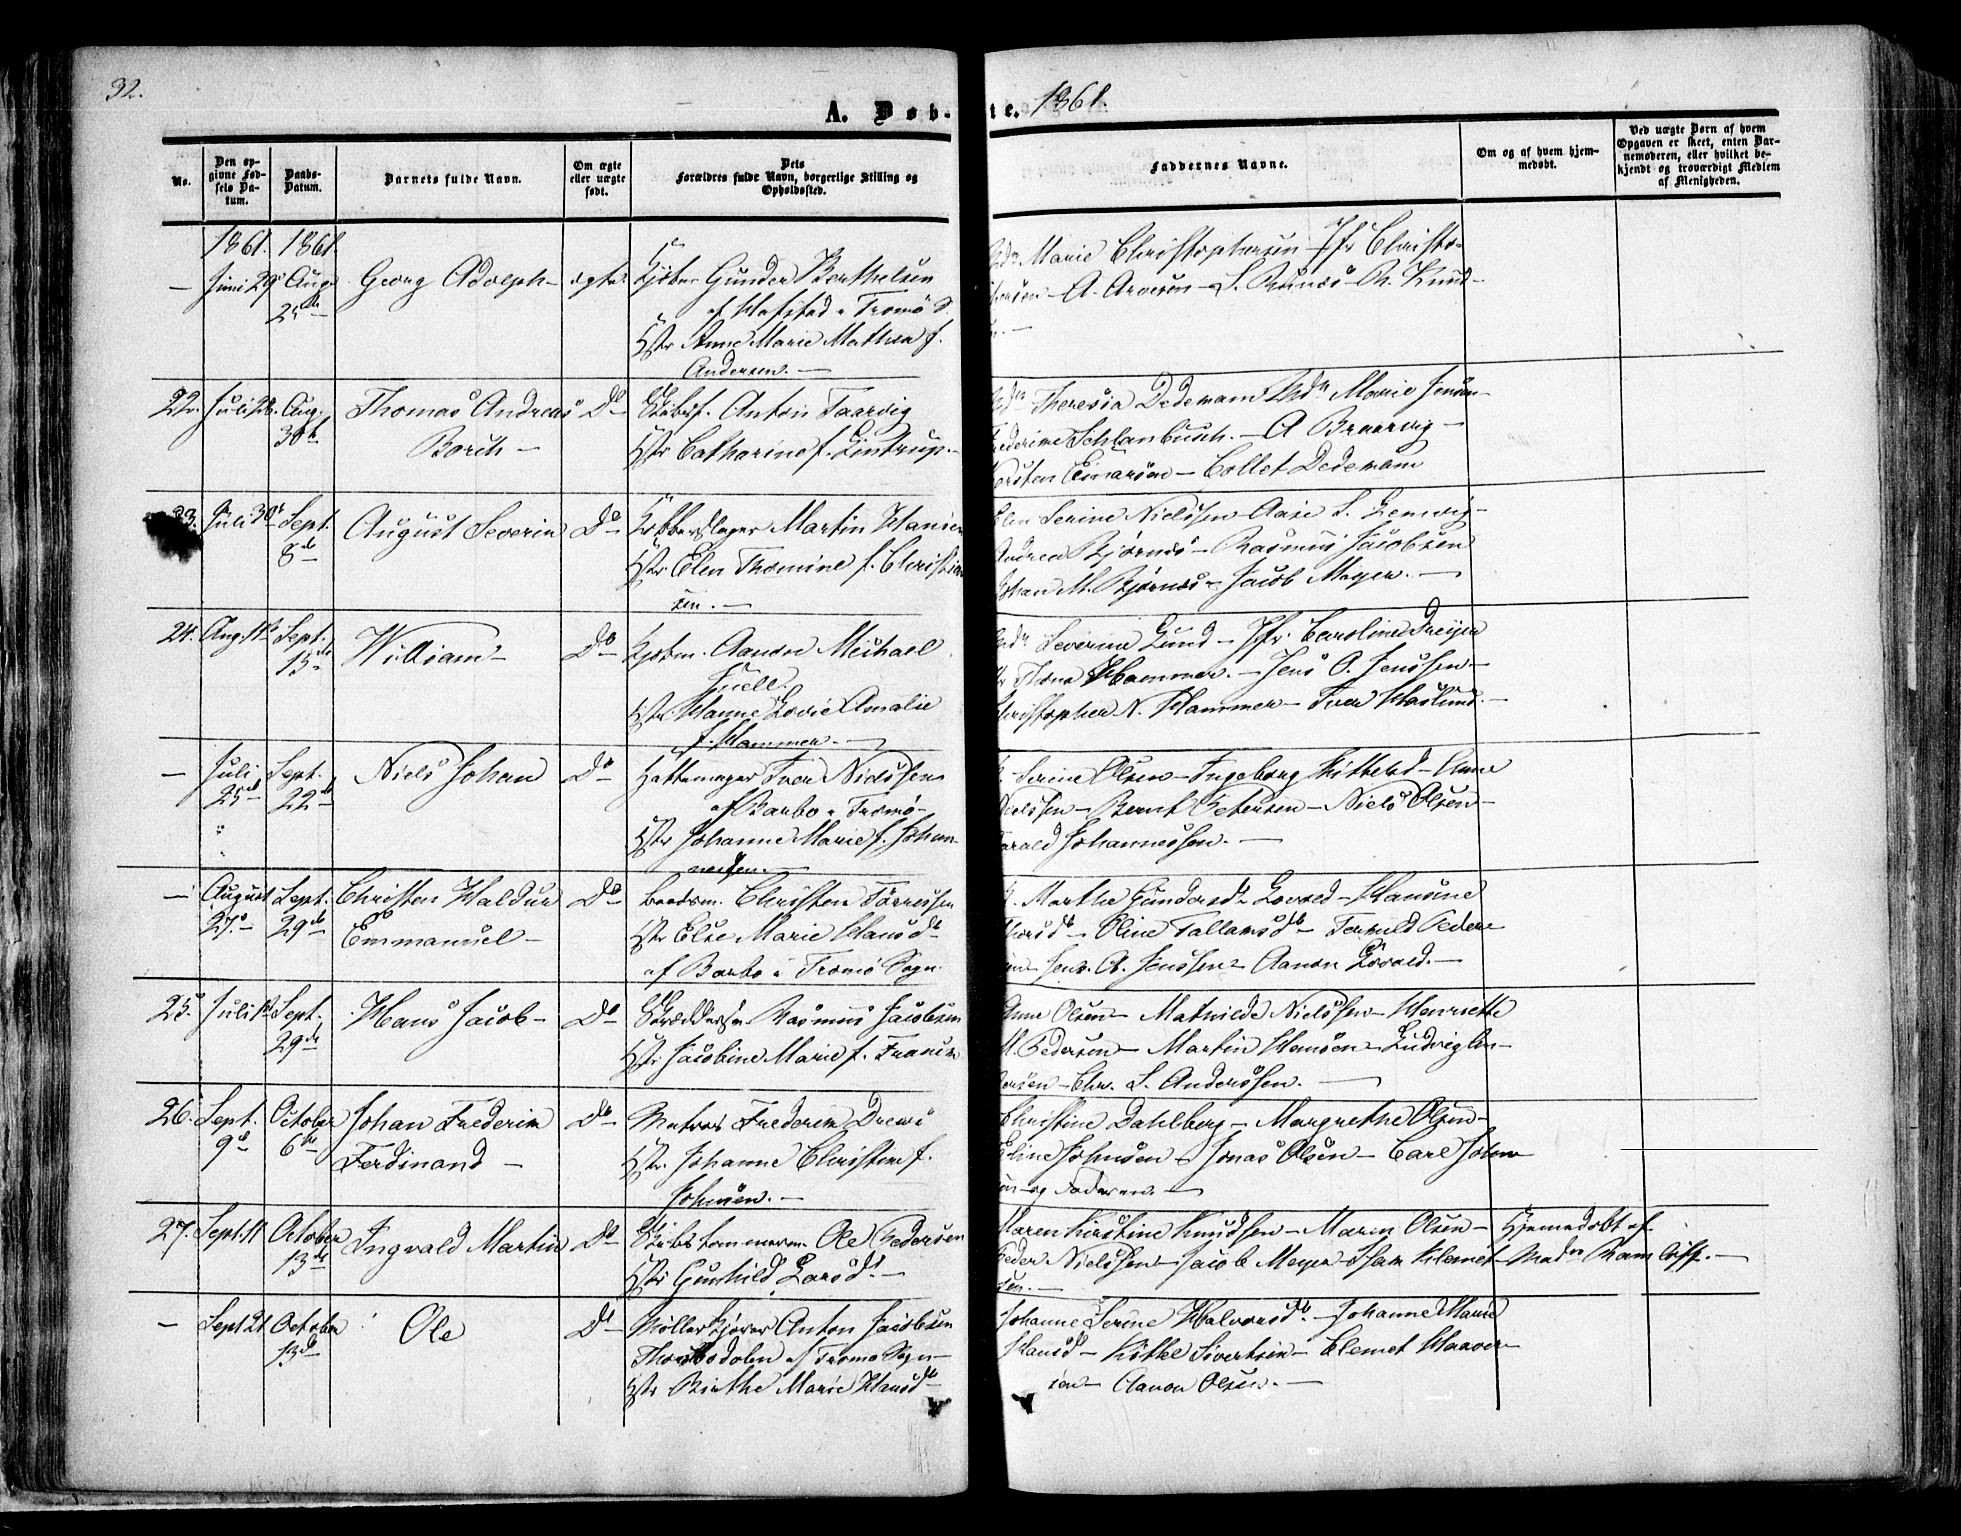 32.
A. Døb-
te. 1861.
No.
Den op-
givne Fød-
sels Da-
tum.
Daabs-
Datum.
Barnets fulde Navn.
Om ægte
eller uægte
født.
Dets
Forældres fulde Navn, borgerlige Stilling og
Opholdssted.
Faddernes Navne.
Om og af hvem hjem-
medøbt.
Ved uægte Børn af hvem
Opgaven er skeet, enten Bar-
nemoderen, eller hvilket be-
kjendt og troværdigt Medlem
af Menigheden.
1861. 1861.
— Juni 29 Aug 25de Georg Adolph — ægte Gunder Berthelsen
af Hafstad i Tromö S.
Hstr Anne Marie Mathea f.
Andersen. —
Marie Christophersen — Jfr Christo-
phersen — A. Arvesen — Knud-
22. Juli Aug. 30te Thomas Andreas Do Skibsf. Anton Taarvig
Borch — Hstr Catharine f. Lintrup. —
Theresia Dedemann Md. Marie Jensen —
Schlanbusch. — A Braarvig —
Einarsen — Collet Dedemam
23. Juli 30te Sept. 8de August Severin Do Kobberslager Martin Hansen
Hstr Elen Thomine f. Christian
sen. —
Elen Serine Nielssen — Aase L.
Andrea Bjørnes — Rasmus Jacobsen
Johan M. Bjørnes — Jacob Meyer. —
24. Aug. Sept. 15de William — Do Kjøbm. Aanon Michael
Juell.
Hstr. Hanne Lovie Amalie
f. Hammer. —
Severine Lund — Jfr. Caroline Dreijer
Hammer. — Jens O. Jenssen —
Christopher N. Hammer — Iver Haslund. —
— Juli 25de Sept. 22de Niels Johan Do Hattemager Iver Nielssen
af Barbo i Tromö —
Hstr Johanne Marie f. Johan
nessen. —
Serine Olsen — Ingeborg — Anne
Nielssen — Bernt Petersen — Niels Olsen —
Harald Johannessen. —
— August 27. Sept. 29de Christen Waldur Do Baadsm. Christen Tørressen
Emmanuel — Hstr Else Marie Hansd
af Barbo i Tromö Sogn.
Marthe Gundersd — Hansine
Thorsd — Oline Tallaksd — Peder
sen — Jens A. Jenssen — Aanon
25. Juli Sept. 29de Hans Jacob — Do Skræddersv. Rasmus Jacobsen
Hstr. Jacobine Marie f. Fransen
Anne Olsen — Mathilde Nielssen — Henriette
M. Pedersen — Martin Hansen — Ludvig An-
dersen — Chr. L. Anderssen. —
26. Sept. 9de October 6te Johan Frederik Do Matros Frederik Drews
Ferdinand — Hstr. Johanne Christine f.
Johnsen. —
Christine Dahlberg — Margrethe Olsen —
Eline Johnsen — Jonas Olsen — Carl John
sen — og Faderen. —
27. Sept. 11 October 13de Ingvald Martin Do Skibstømmerm. Ole Pedersen
Hstr Gunhild Larsd. —
Maren Kirstine Knudssen — Maren Olsen — Hjemmedøbt af
Peder Nielssen — Jacob Meyer — Isak Klemet — Mad. Ramcliff. —
sen. —
— Sept 21 October 13de Ole Do Møller Anton Jacobsen
af Tromø Sogn —
Hstr Birthe Marie Knudd —
Johanne Serine Halvorsd. — Johanne Marie
Hansd — Kittel Sivertsen — Clemet Haavor-
sen — Aanon Olsen. —